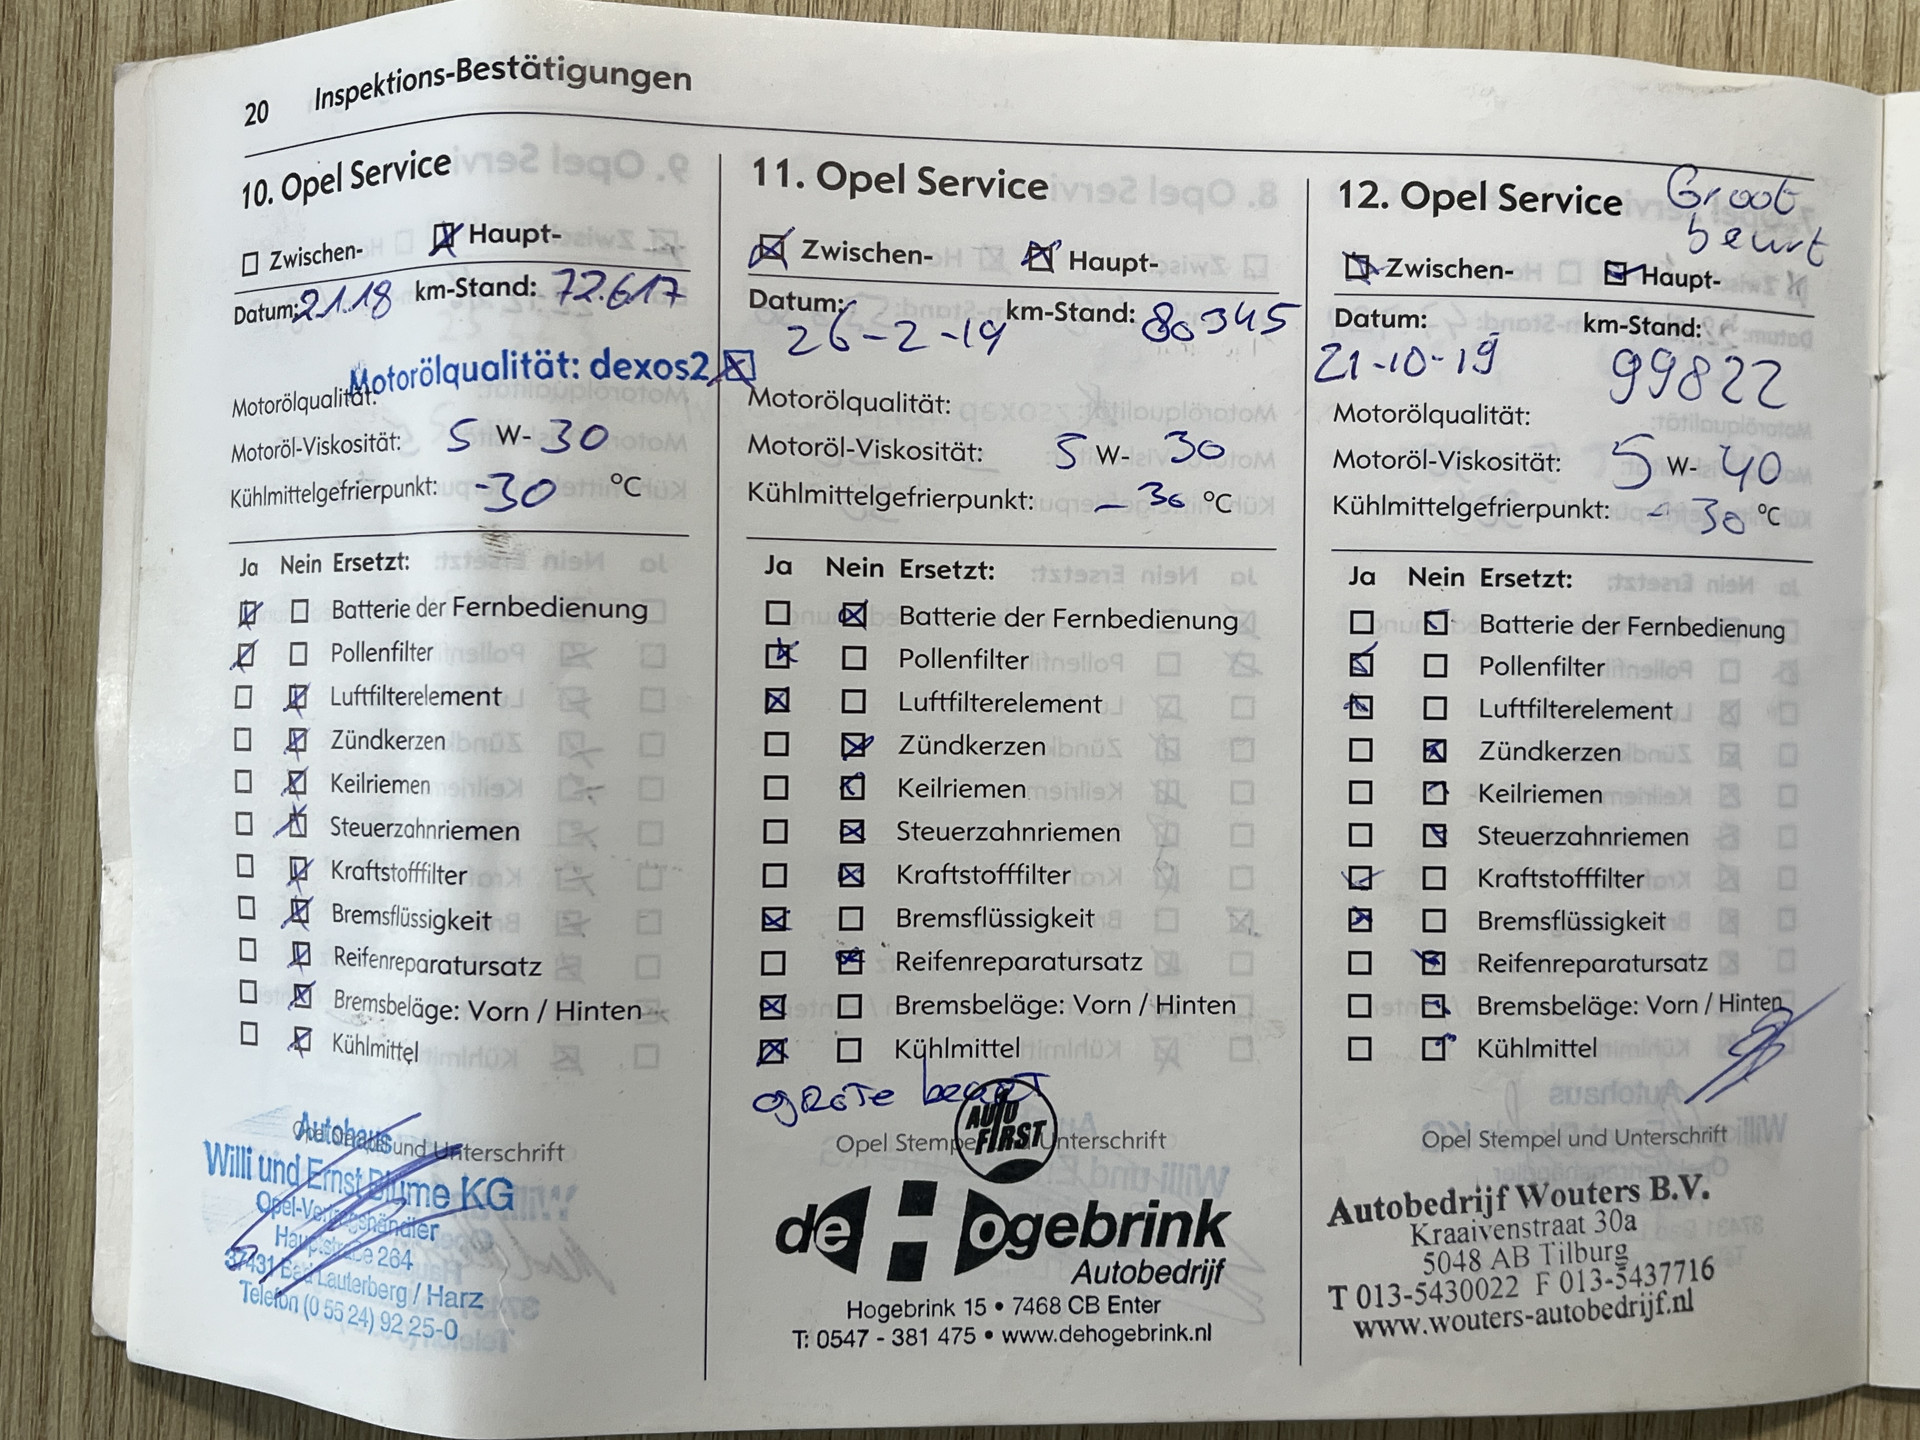 20 Inspektions-Bestätigungen
10. Opel Service
Zwischen- Haupt-
Datum: 2.1.18 km-Stand: 72.617
Motorölqualität: dexos2
Motorölqualität:
Motoröl-Viskosität: 5 W- 30
Kühlmittelgefrierpunkt: -30 °C
Ja Nein Ersetzt:
Batterie der Fernbedienung
Pollenfilter
Luftfilterelement
Zündkerzen
Keilriemen
Steuerzahnriemen
Kraftstofffilter
Bremsflüssigkeit
Reifenreparatursatz
Bremsbeläge: Vorn / Hinten
Kühlmittel
Opel Stempel und Unterschrift
Autohaus
Willi und Ernst Blume KG
Opel-Vertragshändler
Hauptstraße 264
37431 Bad Lauterberg / Harz
Telefon (0 55 24) 92 25-0
11. Opel Service
Zwischen- Haupt-
Datum: km-Stand: 80345
26-2-19
Motorölqualität:
Motoröl-Viskosität: 5 W- 30
Kühlmittelgefrierpunkt: -30 °C
Ja Nein Ersetzt:
Batterie der Fernbedienung
Pollenfilter
Luftfilterelement
Zündkerzen
Keilriemen
Steuerzahnriemen
Kraftstofffilter
Bremsflüssigkeit
Reifenreparatursatz
Bremsbeläge: Vorn / Hinten
Kühlmittel
grote beurt
Opel Stempel und Unterschrift
AUTO
FIRST
de Hogebrink
Autobedrijf
Hogebrink 15 • 7468 CB Enter
T: 0547 - 381 475 • www.dehogebrink.nl
12. Opel Service Groot
beurt
Zwischen- Haupt-
Datum: km-Stand:
21-10-19 99822
Motorölqualität:
Motoröl-Viskosität: 5 W- 40
Kühlmittelgefrierpunkt: - 30 °C
Ja Nein Ersetzt:
Batterie der Fernbedienung
Pollenfilter
Luftfilterelement
Zündkerzen
Keilriemen
Steuerzahnriemen
Kraftstofffilter
Bremsflüssigkeit
Reifenreparatursatz
Bremsbeläge: Vorn / Hinten
Kühlmittel
Opel Stempel und Unterschrift
Autobedrijf Wouters B.V.
Kraaivenstraat 30a
5048 AB Tilburg
T 013-5430022 F 013-5437716
www.wouters-autobedrijf.nl